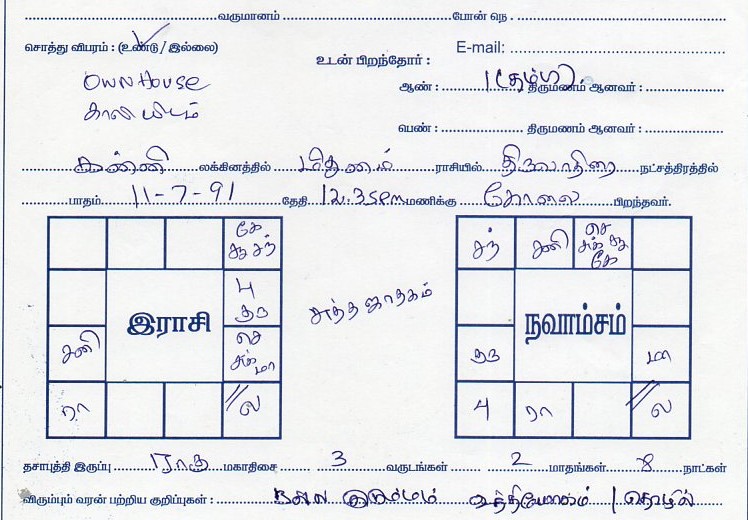 வருமானம் போன் நெ.
சொத்து விபரம் : (உண்டு / இல்லை)
E-mail:
உடன் பிறந்தோர் :
OWN HOUSE
ஆண் : 1 (தம்பி) திருமணம் ஆனவர் :
காலி யிடம்
பெண் : திருமணம் ஆனவர் :
கன்னி லக்கினத்தில் மிதுனம் ராசியில் திருவாதிரை நட்சத்திரத்தில்
பாதம் 11-7-91 தேதி 12.35pm மணிக்கு கோவை பிறந்தவர்.
கே
சூ சந்
4
குரு
இராசி
சனி
செ
சுக்
மா
ரா
ல
சுத்த ஜாதகம்
சந்
சனி
செ
சுக் சூ
கே
நவாம்சம்
குரு
மா
4
ரா
ல
தசாபுத்தி இருப்பு ராகு மகாதிசை 3 வருடங்கள் 2 மாதங்கள் 8 நாட்கள்
விரும்பும் வரன் பற்றிய குறிப்புகள் : நல்ல குடும்பம் உத்தியோகம் / தொழில்